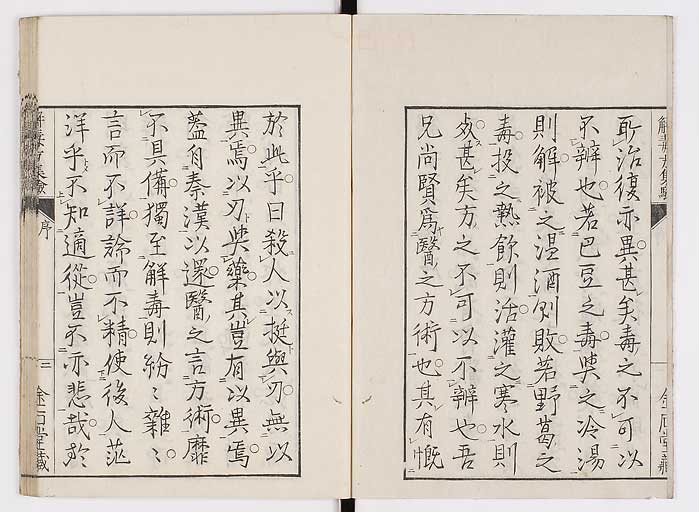 所治復亦異甚矣毒之不可以
不辨也若巴豆之毒與之冷湯
則解被之温酒則敗若野葛之
毒投之熱飲則活灌之寒水則
死甚矣方之不可以不辨也吾
兄尚賢爲醫之方術也其有慨
於此乎曰殺人以挺與刃無以
異焉以刃與藥其豈有以異焉
蓋自秦漢以還醫之言方術靡
不具備獨至解毒則紛〻雜〻
言而不詳論而不精使後人茫
洋乎不知適從豈不亦悲哉於
序
三
金石堂藏